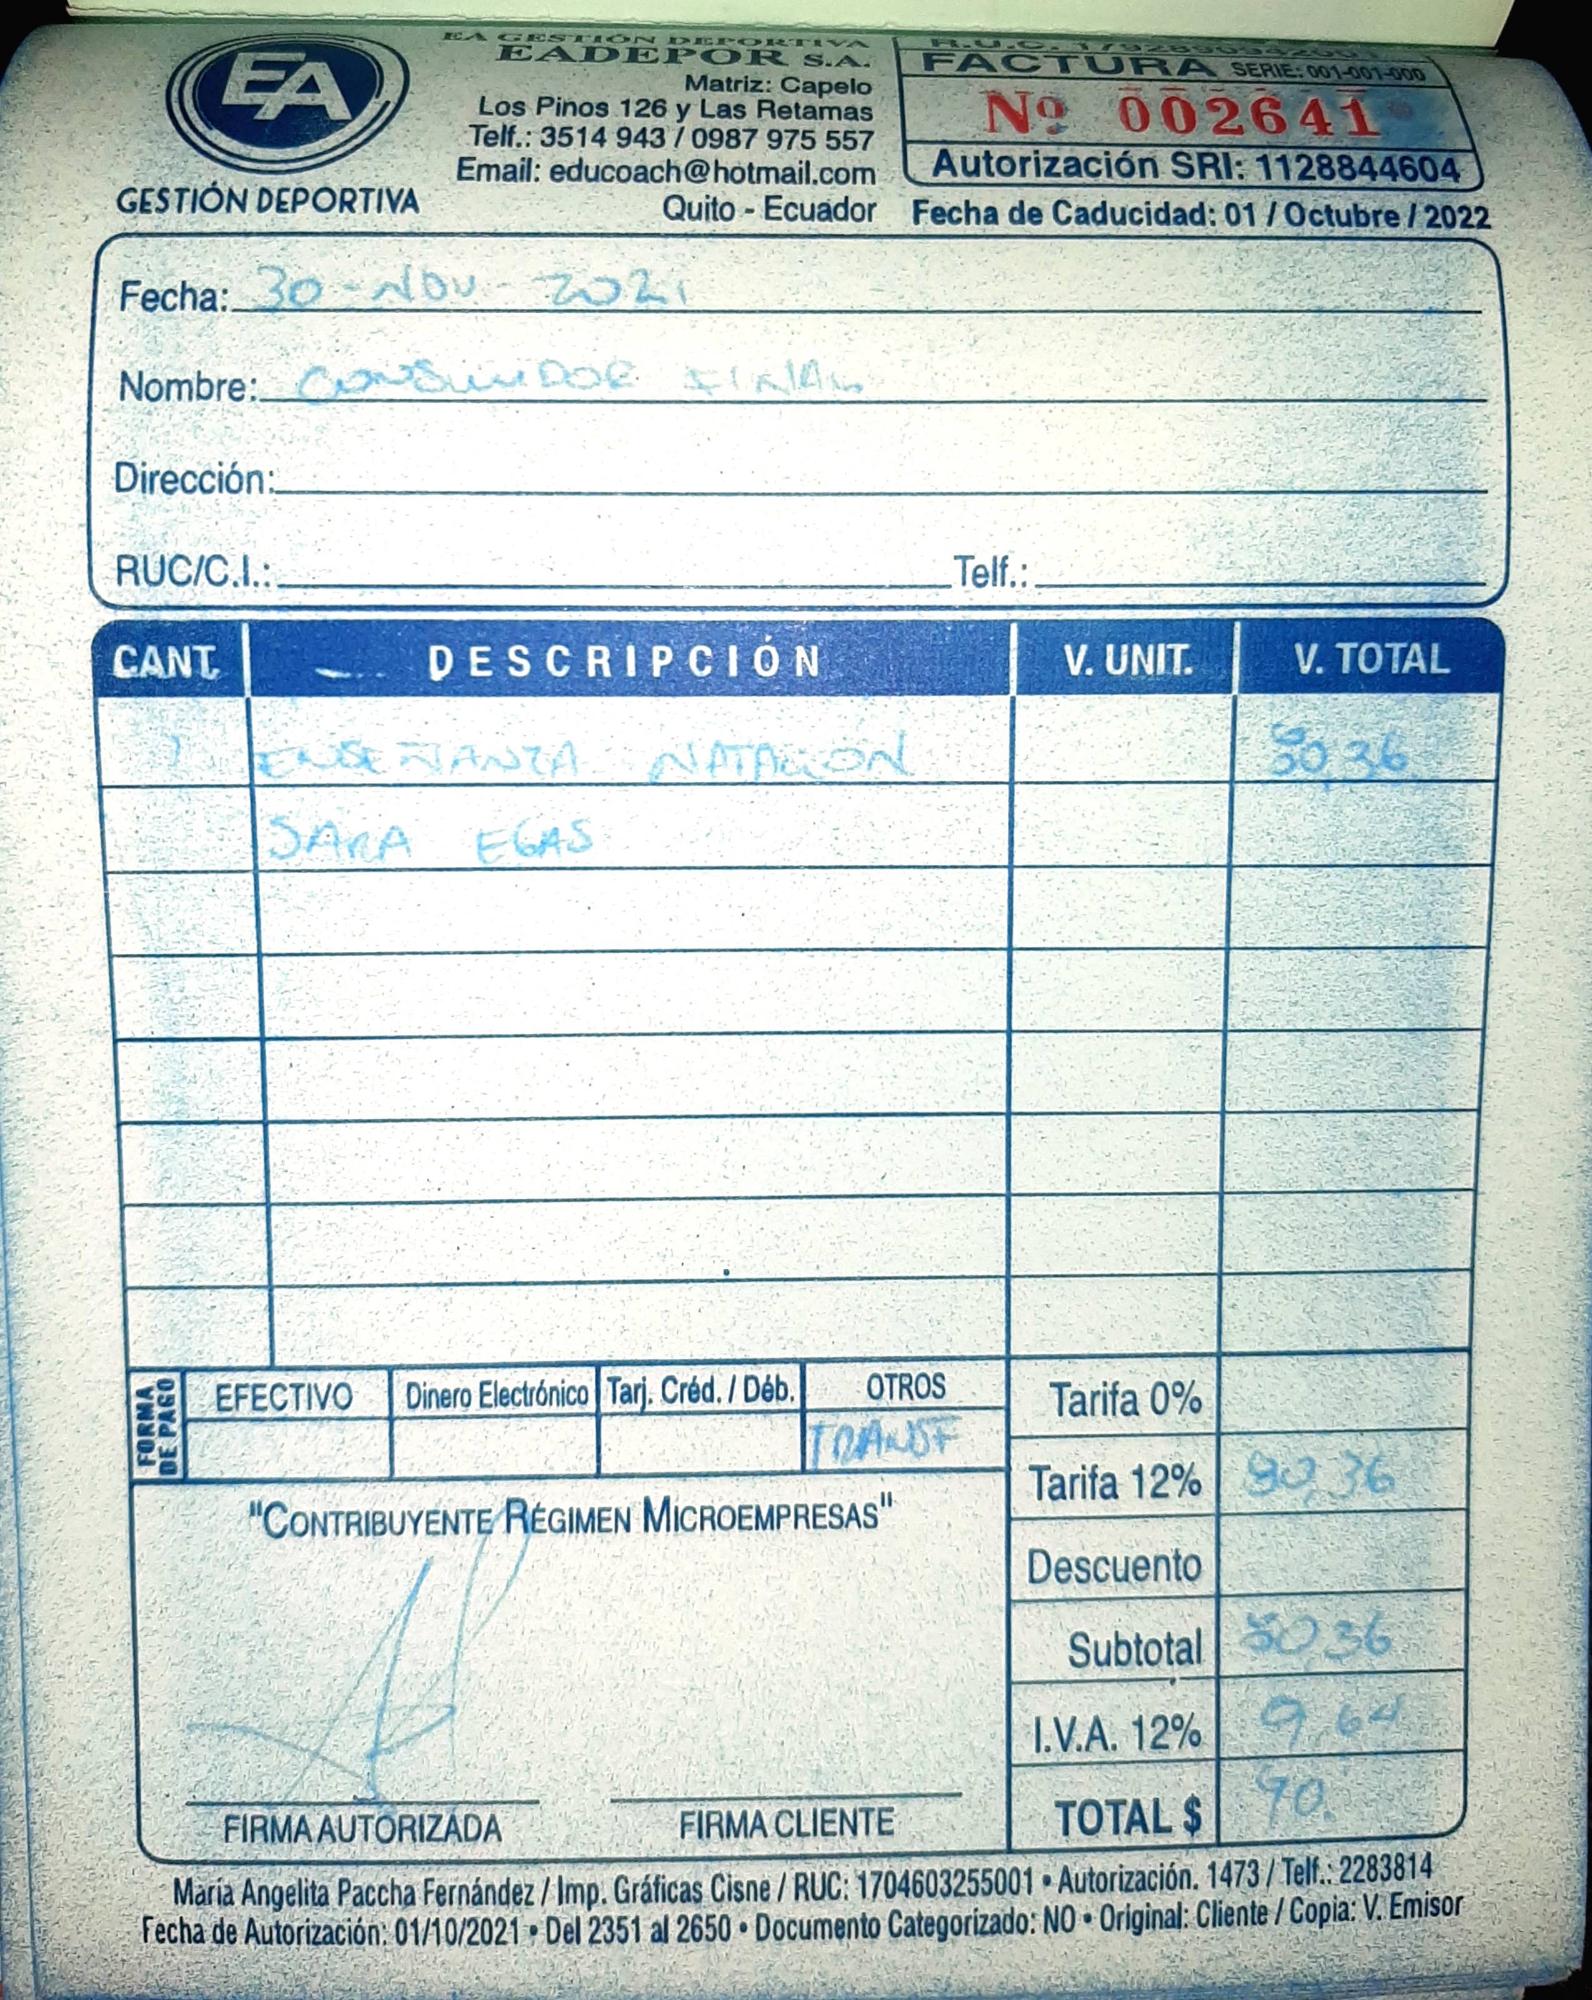 EA
GESTIÓN DEPORTIVA
EA GESTIÓN DEPORTIVA
EADEPOR S.A.
Matriz: Capelo
Los Pinos 126 y Las Retamas
Telf.: 3514 943 / 0987 975 557
Email: educoach@hotmail.com
Quito - Ecuador
R.U.C.
FACTURA SERIE: 001-001-000
Nº 002641
Autorización SRI: 1128844604
Fecha de Caducidad: 01 / Octubre / 2022
Fecha: 30-NOV-2021
Nombre: CONSUMIDOR FINAL
Dirección:
RUC/C.I.: Telf.:
CANT. DESCRIPCIÓN V. UNIT. V. TOTAL
1 ENSEÑANZA NATACION 80,36
SARA EGAS
FORMA DE PAGO
EFECTIVO Dinero Electrónico Tarj. Créd. / Déb. OTROS
TRANSF
Tarifa 0%
Tarifa 12% 80,36
Descuento
Subtotal 80,36
I.V.A. 12% 9,64
TOTAL $ 90.
"CONTRIBUYENTE RÉGIMEN MICROEMPRESAS"
FIRMA AUTORIZADA FIRMA CLIENTE
María Angelita Paccha Fernández / Imp. Gráficas Cisne / RUC: 1704603255001 • Autorización. 1473 / Telf.: 2283814
Fecha de Autorización: 01/10/2021 • Del 2351 al 2650 • Documento Categorizado: NO • Original: Cliente / Copia: V. Emisor